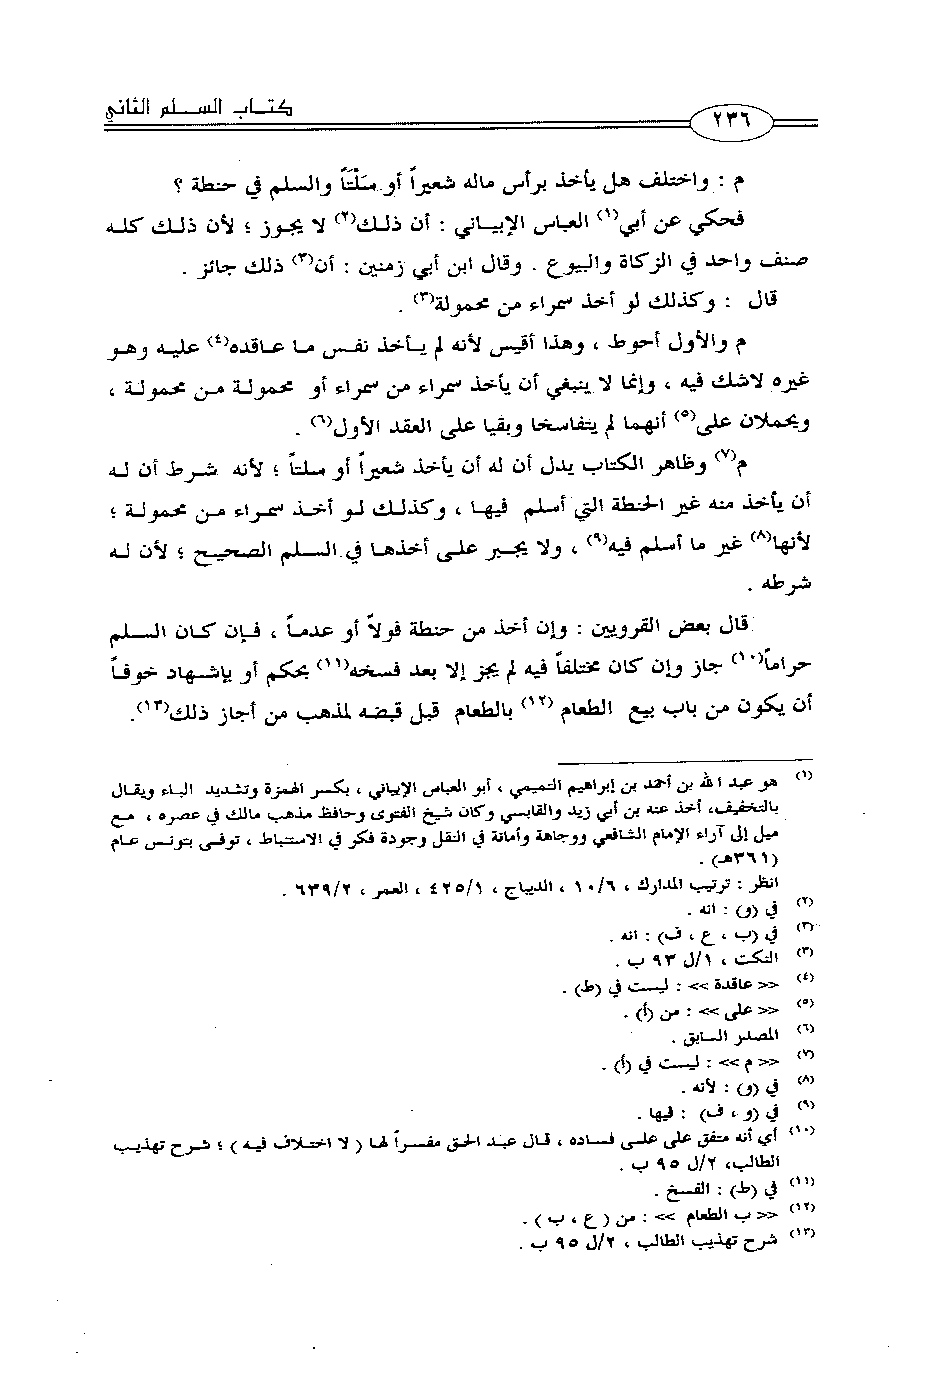 كتاب السلم الثاني
٢٣٦
م : واختلف هل يأخذ برأس ماله شعيراً أو سَلْتَاً والسلم في حنطة ؟
فحكي عن أبي(١) العباس الإبياني : أن ذلك(٢) لا يجوز ؛ لأن ذلك كله
صنف واحد في الزكاة والبيوع . وقال ابن أبي زمنين : أن(٣) ذلك جائز .
قال : وكذلك لو أخذ سمراء من محمولة(٣) .
م والأول أحوط ، وهذا أقيس لأنه لم يأخذ نفس ما عاقده(٤) عليه وهو
غيره لاشك فيه ، وإنما لا ينبغي أن يأخذ سمراء من سمراء أو محمولة من محمولة ،
ويحملان على(٥) أنهما لم يتفاسخا وبقيا على العقد الأول(٦) .
م(٧) وظاهر الكتاب يدل أن له أن يأخذ شعيراً أو سلتاً ؛ لأنه شرط أن له
أن يأخذ منه غير الحنطة التي أسلم فيها ، وكذلك لو أخذ سمراء من محمولة ؛
لأنها(٨) غير ما أسلم فيه(٩) ، ولا يجبر على أخذها في السلم الصحيح ؛ لأن له
شرطه .
قال بعض القرويين : وإن أخذ من حنطة فولاً أو عدساً ، فإن كان السلم
حراماً(١٠) جاز وإن كان مختلفاً فيه لم يجز إلا بعد فسخه(١١) بحكم أو بإشهاد خوفاً
أن يكون من باب بيع الطعام (١٢) بالطعام قبل قبضه لمذهب من أجاز ذلك(١٣).
(١) هو عبد الله بن أحمد بن إبراهيم التميمي ، أبو العباس الإبياني ، بكسر الهمزة وتشديد الباء ويقال
بالتخفيف، أخذ عنه بن أبي زيد والقابسي وكان شيخ الفتوى وحافظ مذهب مالك في عصره ، مع
ميل إلى آراء الإمام الشافعي ووجاهة وأمانة في النقل وجودة فكر في الاستنباط ، توفى بتونس عام
(٣٦١هـ) .
انظر : ترتيب المدارك ، ١٠/٦ ، الديباج ، ٤٢٥/١ ، العمر ، ٦٣٩/٢ .
(٢) في (و) : انه .
(٣) في (ب ، ع ، ف) : انه .
(٣) النكت ، ١/ل ٩٣ ب .
(٤) << عاقدة >> : ليست في (ط) .
(٥) << على >> : من (أ) .
(٦) المصدر السابق .
(٧) << م >> : ليست في (أ) .
(٨) في (و) : لأنه .
(٩) في (و ، ف) : فيها .
(١٠) أي أنه متفق على على فساده ، قال عبد الحق مفسراً لها ( لا اختلاف فيه ) ؛ شرح تهذيب
الطالب، ٢/ل ٩٥ ب .
(١١) في (ط) : الفسخ .
(١٢) << ب الطعام >> : من ( ع ، ب ) .
(١٣) شرح تهذيب الطالب ، ٢/ل ٩٥ ب .